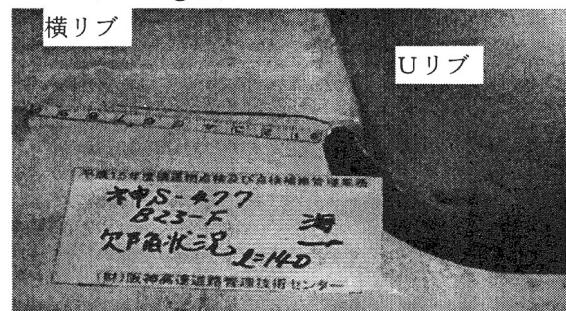 横リブ
Uリブ
平成15年度構造物点検及び点検補修管理業務
神S-477
B23-F
海
欠陥状況 l=140
(財)阪神高速道路管理技術センター